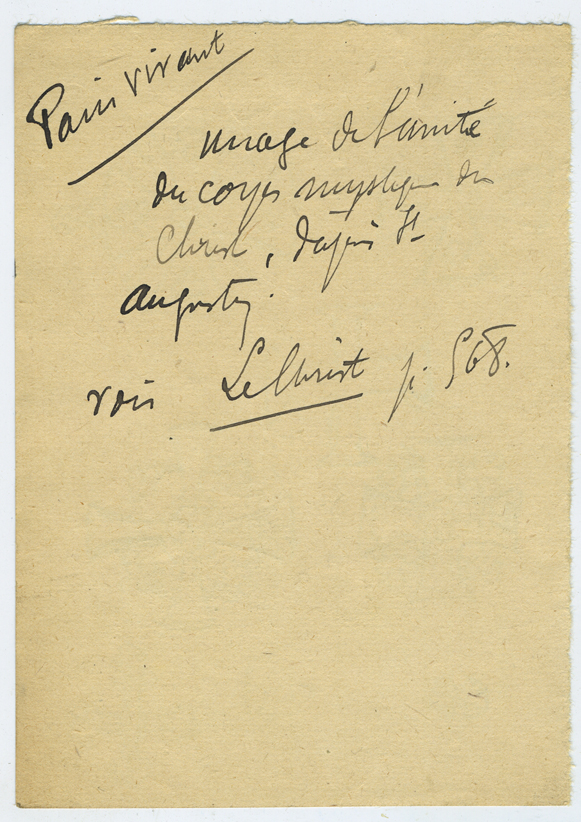 Pain vivant
image de l'unité
du corps mystique du
Christ, d'après St
Augustin.
voir Le Christ p. 568.